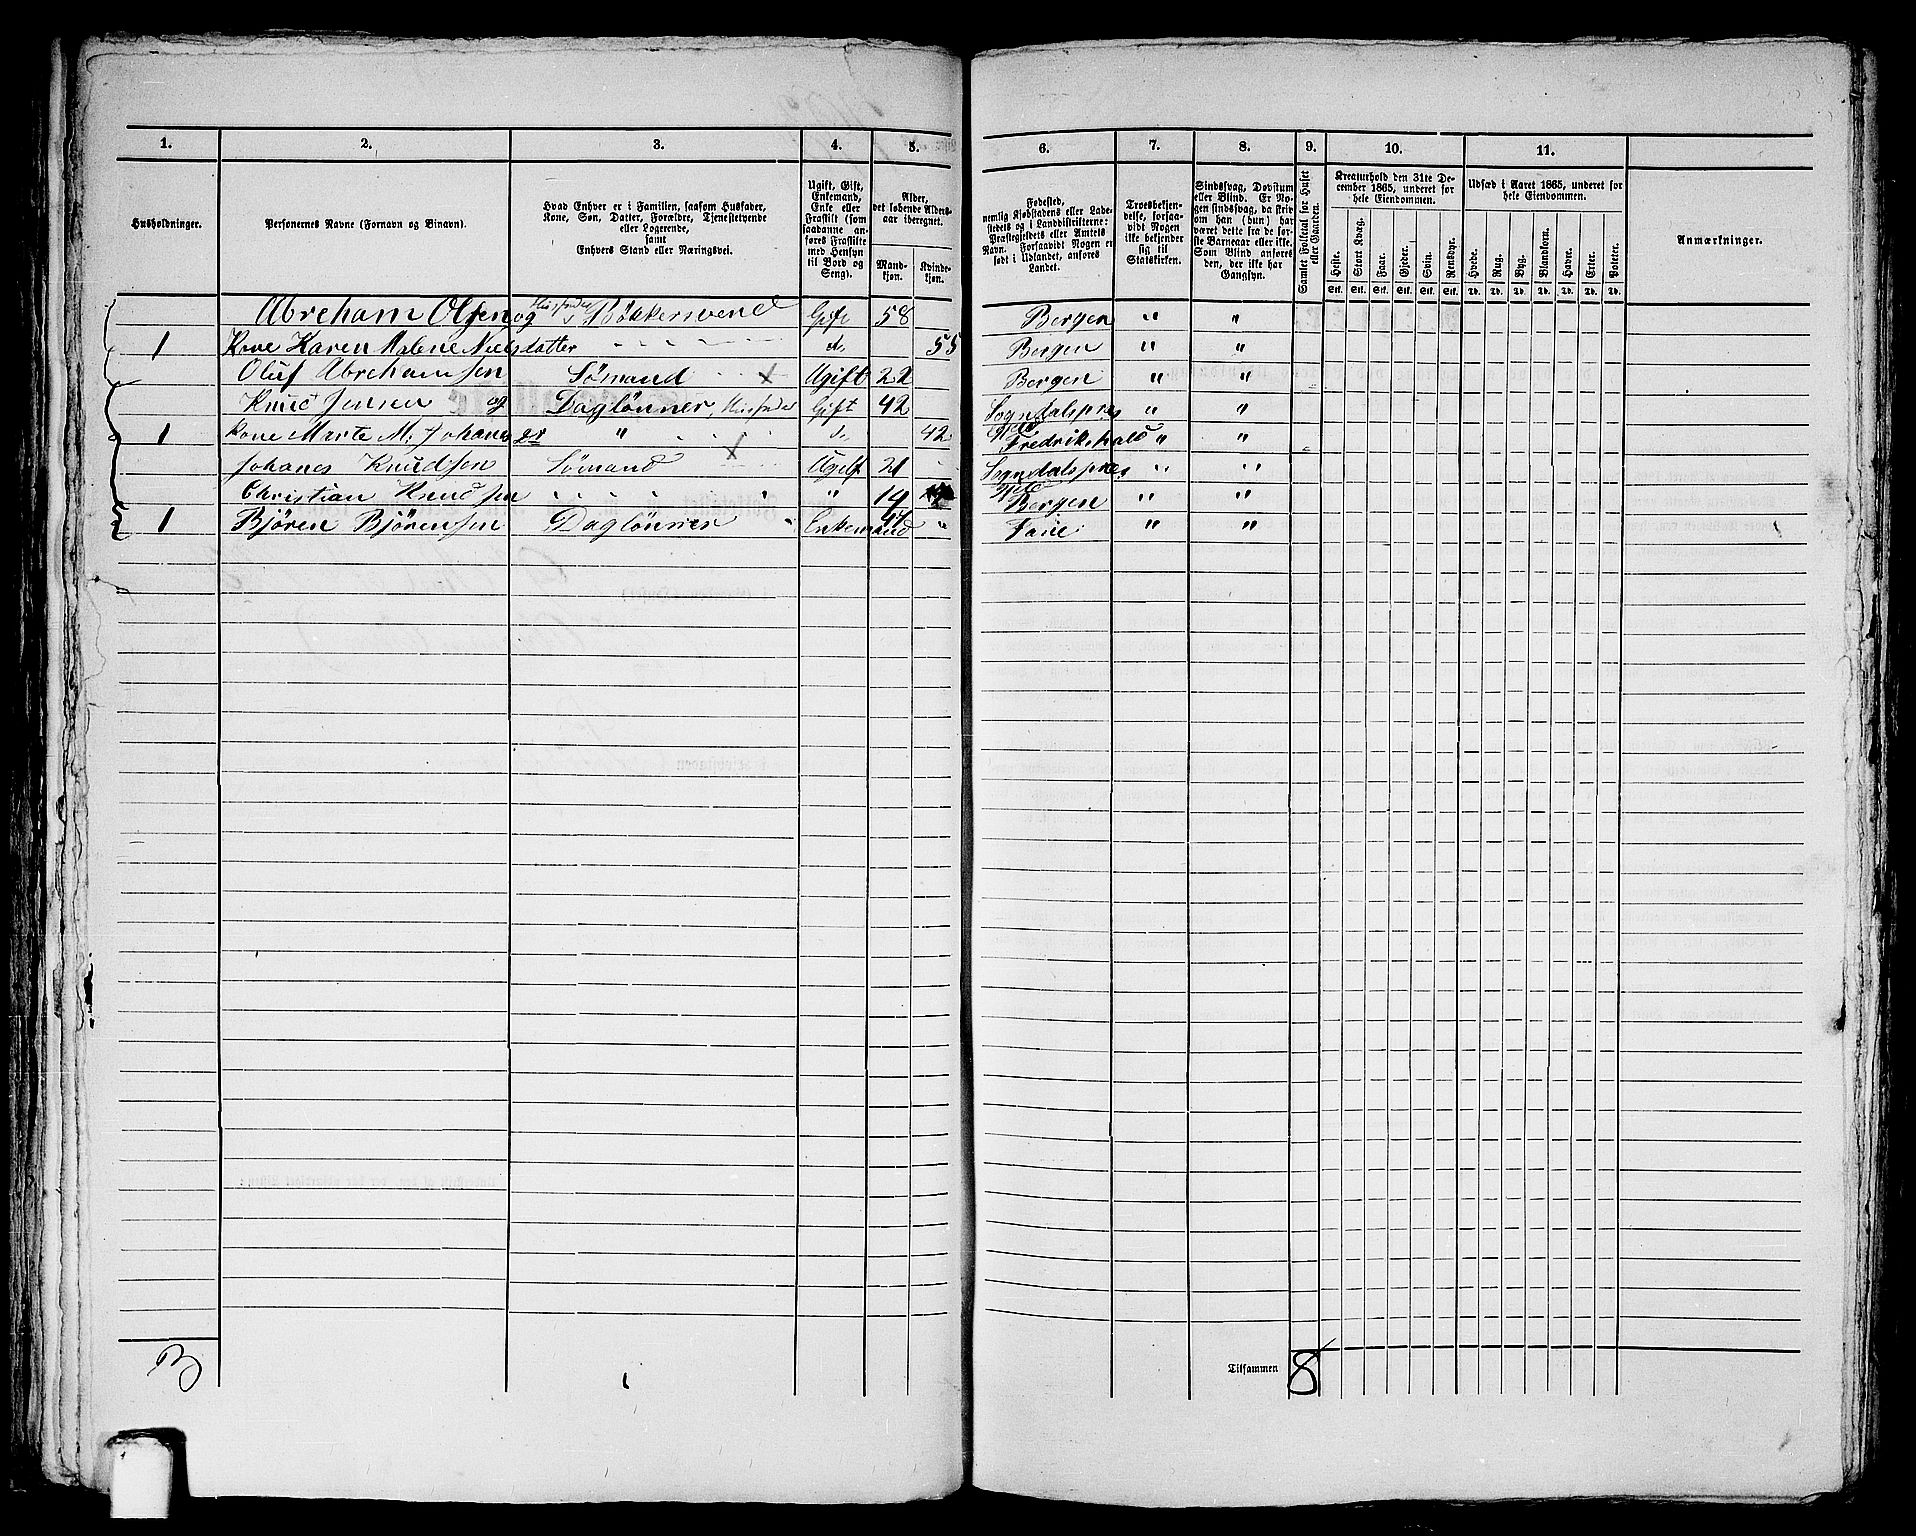 1. 2. 3. 4. 5. 6. 7. 8. 9. 10. 11.
Husholdninger.
Personernes Navne (Fornavn og Binavn).
Hvad Enhver er i Familien, saasom Husfader,
Kone, Søn, Datter, Forældre, Tjenestetyende
eller Logerende,
samt
Enhvers Stand eller Næringsvei.
Ugift, Gift,
Enkemand,
Enke eller
Fraskilt (som
saadanne an-
føres Fraskilte
med Hensyn
til Bord og
Seng).
Alder,
det løbende Alders-
aar iberegnet.
Mand-
kjøn.
Kvinde-
kjøn.
Fødested,
nemlig Kjøbstadens eller Lade-
stedets og i Landdistrikterne:
Præstegjeldets eller Amtets
Navn. Forsaavidt Nogen er
født i Udlandet, anføres
Landet.
Troesbekjen-
delse, forsaa-
vidt Nogen
ikke bekjender
sig til
Statskirken.
Sindssvag, Døvstum
eller Blind. Er No-
gen sindssvag, da skriv
om han (hun) har
været dette fra de før-
ste Barneaar eller ikke.
Som Blind ansøres
den, der ikke har
Gangsyn.
Samlet Folketal for Huset
eller Gaarden.
Kreaturhold den 31te De-
cember 1865, underet for
hele Eiendommen.
Heste. Stort Kvæg. Faar. Gjeder. Svin. Rensdyr.
Stk. Stk. Stk. Stk. Stk. Stk.
Udsæd i Aaret 1865, underet for
hele Eiendommen.
Hvede. Rug. Byg. Blandkorn. Havre. Erter. Poteter.
Td. Td. Td. Td. Td. Td. Td.
Anmærkninger.
Abreham Olsen og Husfader Bøkkersvend Gift 58 Bergen " "
1 Kone Karen Malene Nielsdatter do 55 Bergen " "
Oluf Abrehamsen Sømand x Ugift 22 Bergen " "
Knud Jensen og Daglønner, Husfader Gift 42 Sogndalspres gjeld " "
1 Kone Marte M. Johanesdr " do 42 Fredrikshald " "
Johanes Knudsen Sømand x Ugift 21 Sogndalspres gjeld " "
Christian Knudsen " 14 Bergen " "
1 Bjøren Bjørensen Daglønner Enkemand 47 " Fane " "
3
Tilsammen 8